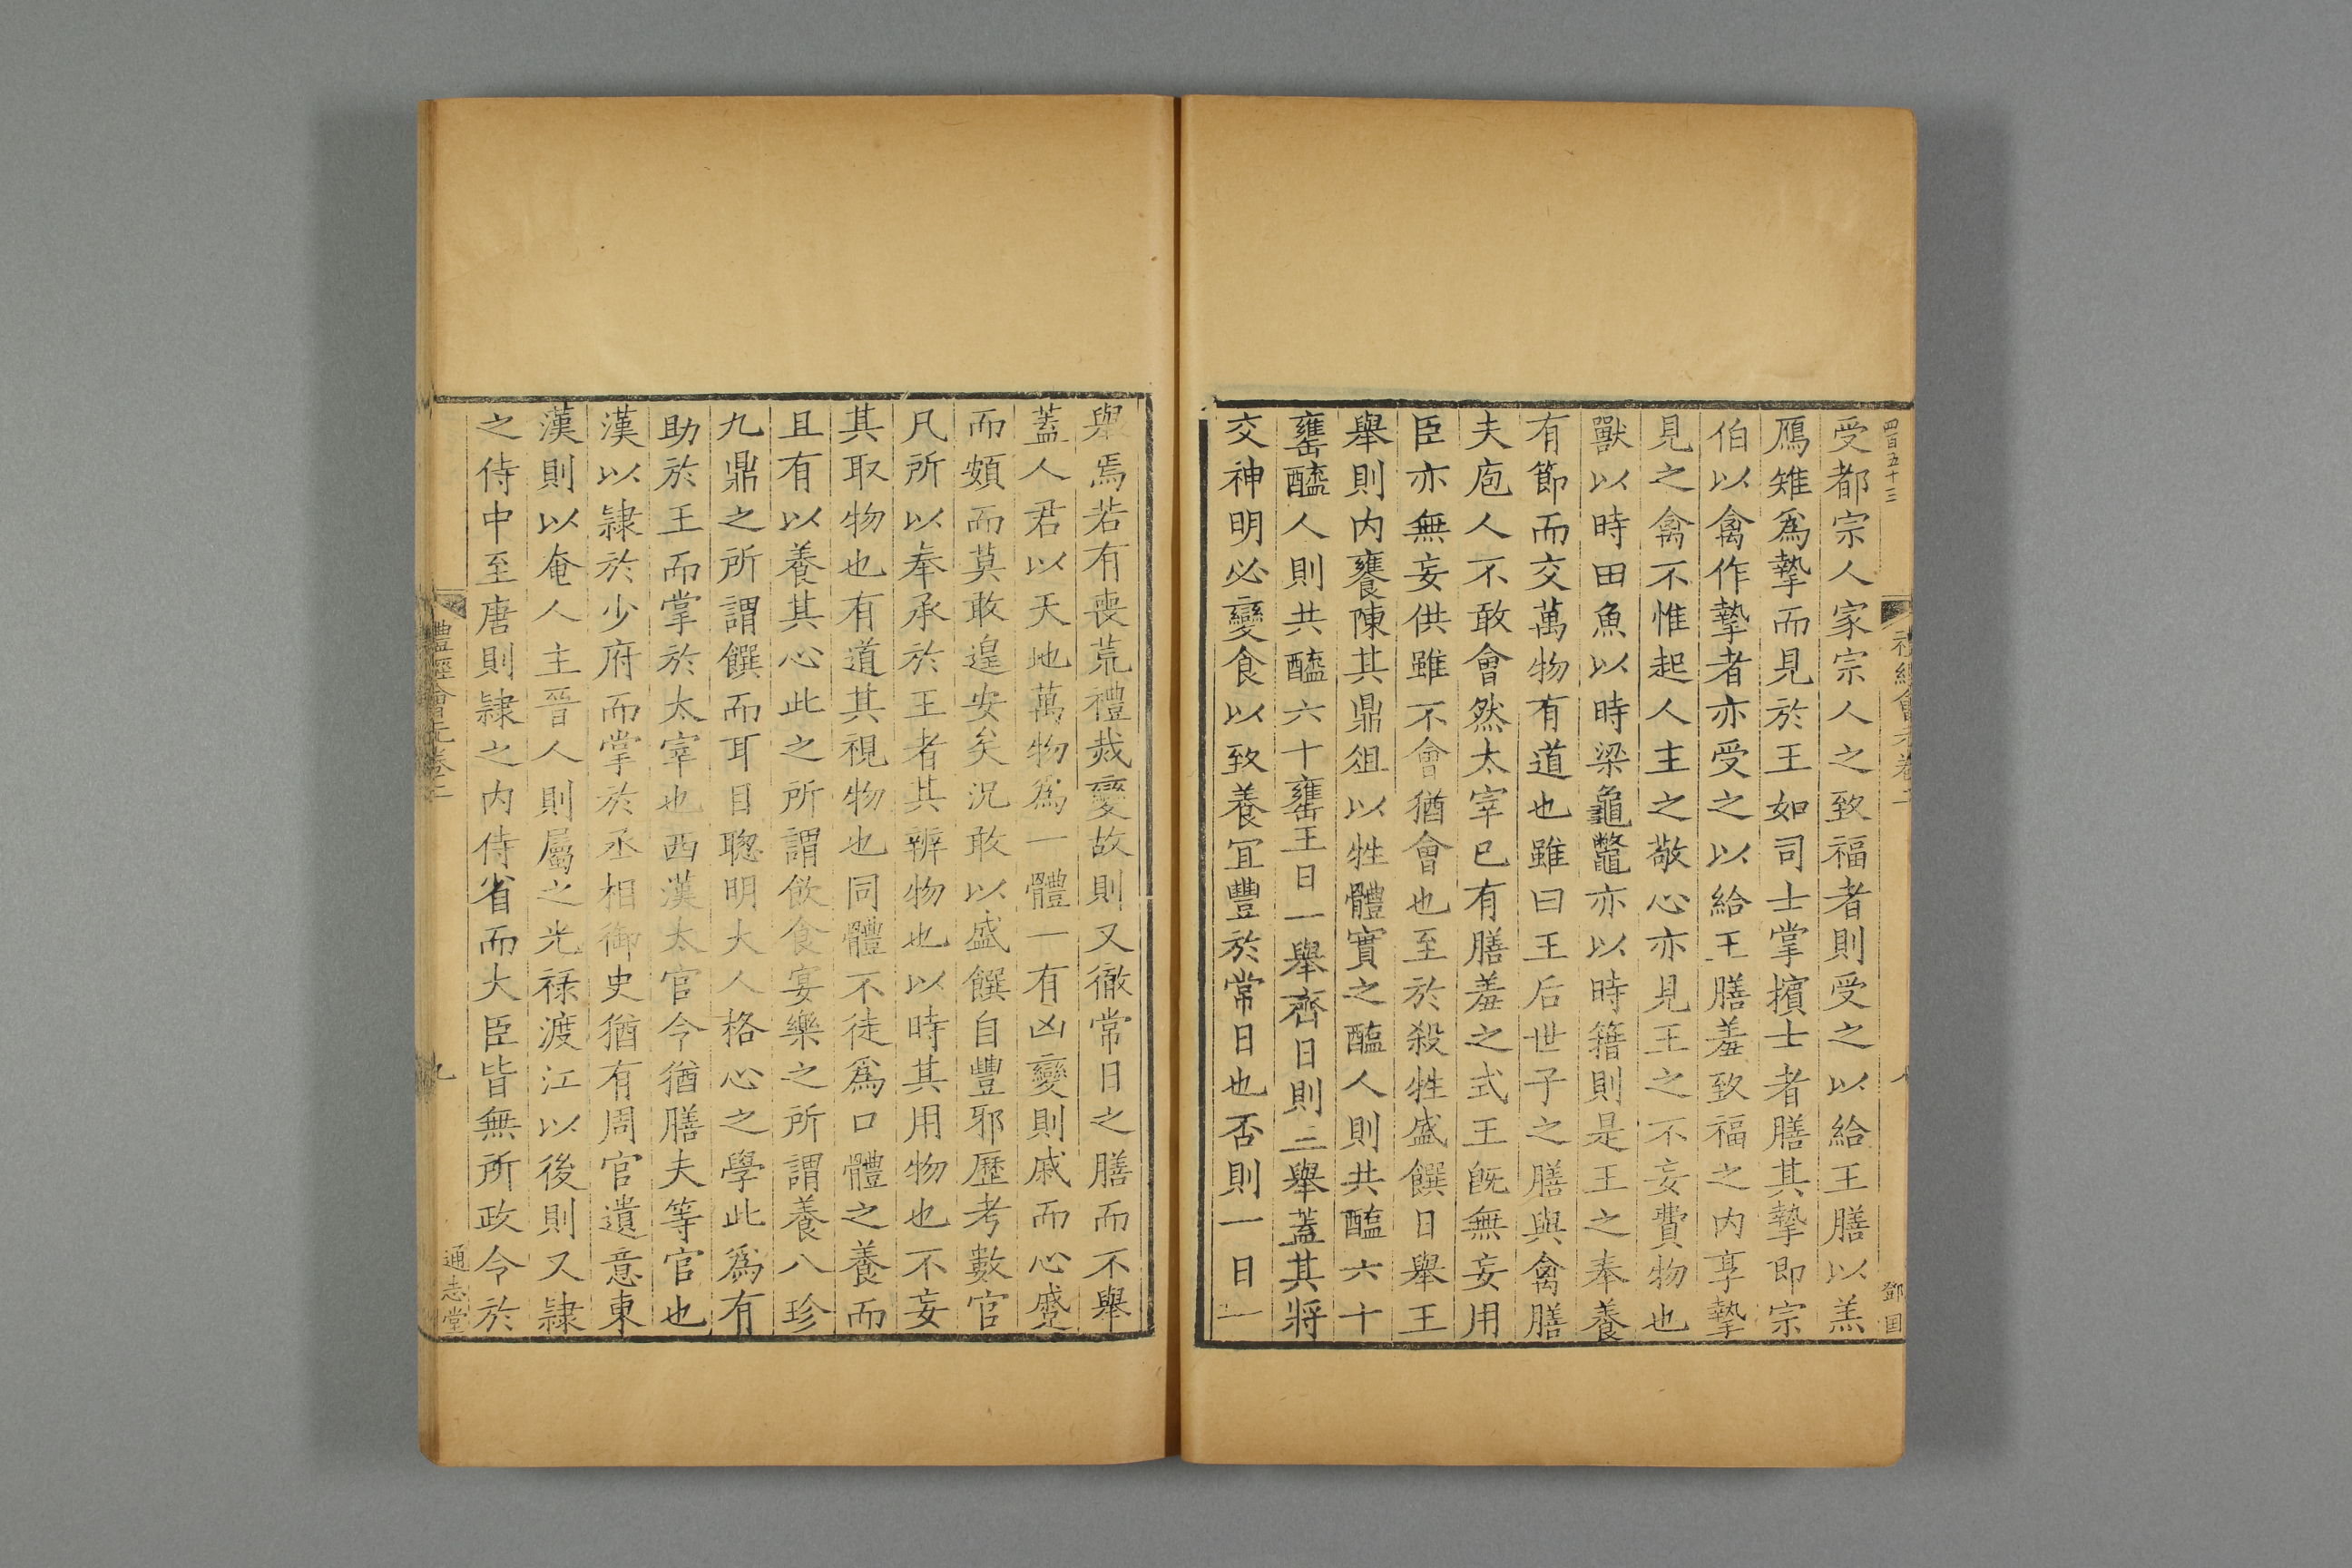 四百五十三
受都宗人家宗人之致福者則受之以給王膳以羔
鴈雉爲摯而見於王如司士掌擯士者膳其摯即宗
伯以禽作摯者亦受之以給王膳羞致福之内享摯
見之禽不惟起人主之敬心亦見王之不妄費物也
獸以時田魚以時梁龜鼈亦以時籍則是王之奉養
有節而交萬物有道也雖曰王后世子之膳與禽膳
夫庖人不敢會然太宰已有膳羞之式王旣無妄用
臣亦無妄供雖不會猶會也至於殺牲盛饌日舉王
舉則内饔陳其鼎俎以牲體實之醢人則共醢六十
罋醯人則共醯六十罋王日一舉齊日則三舉蓋其將
交神明必變食以致養宜豐於常日也否則一日一
鄧国
舉焉若有喪荒禮烖變故則又徹常日之膳而不舉
蓋人君以天地萬物爲一體一有凶變則戚而心蹙
而頞而莫敢遑安矣況敢以盛饌自豐邪歷考數官
凡所以奉承於王者其辨物也以時其用物也不妄
其取物也有道其視物也同體不徒爲口體之養而
且有以養其心此之所謂飲食宴樂之所謂養八珍
九鼎之所謂饌而耳目聰明大人格心之學此爲有
助於王而掌於太宰也西漢太官令猶膳夫等官也
漢以隷於少府而掌於丞相御史猶有周官遺意東
漢則以奄人主晉人則屬之光祿渡江以後則又隷
之侍中至唐則隷之内侍省而大臣皆無所政令於
禮經會元卷二
九
通志堂